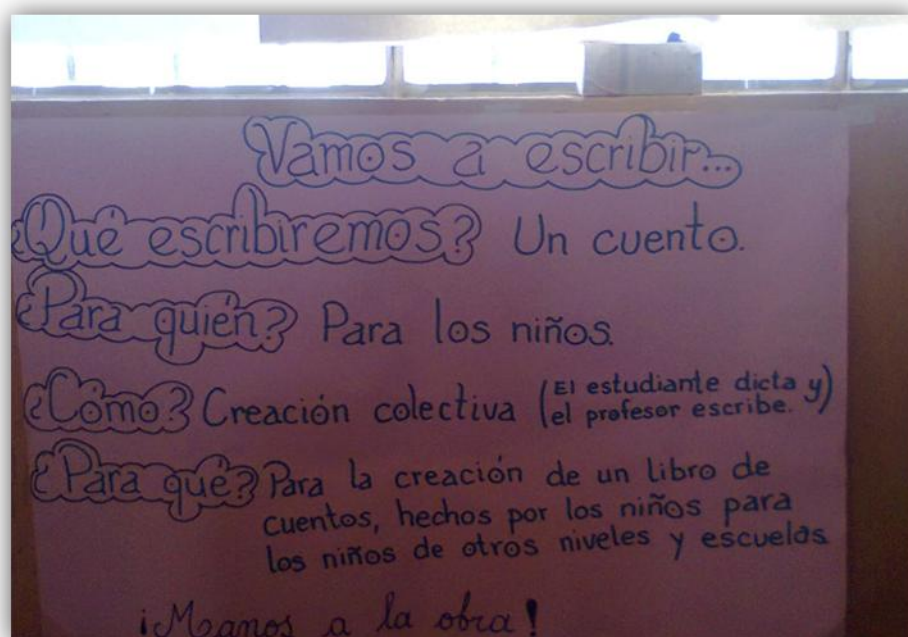 Vamos a escribir...
¿Qué escribiremos? Un cuento.
¿Para quién? Para los niños.
¿Cómo? Creación colectiva (El estudiante dicta y
el profesor escribe.)
¿Para qué? Para la creación de un libro de
cuentos, hechos por los niños para
los niños de otros niveles y escuelas
¡Manos a la obra!